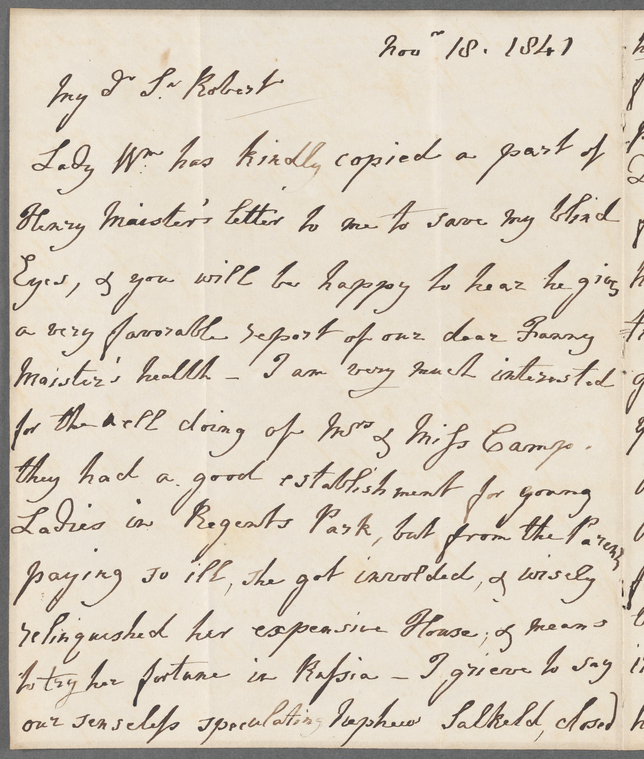 Novr 18. 1841
My Dr Sr Robert
Lady Wm has kindly copied a part of
Henry Maister's letter to me to save my blind
Eyes, & you will be happy to hear he gives
a very favorable report of our dear Fanny
Maister's health - I am very much interested
for the well doing of Mrs & Miss Camp.
they had a good establishment for young
Ladies in Regents Park, but from the Parents
paying so ill, she got involded, & wisely
relinquished her expensive House; & means
to try her fortune in Russia - I grieve to say
our senseless speculating Nephew Salkeld, closed